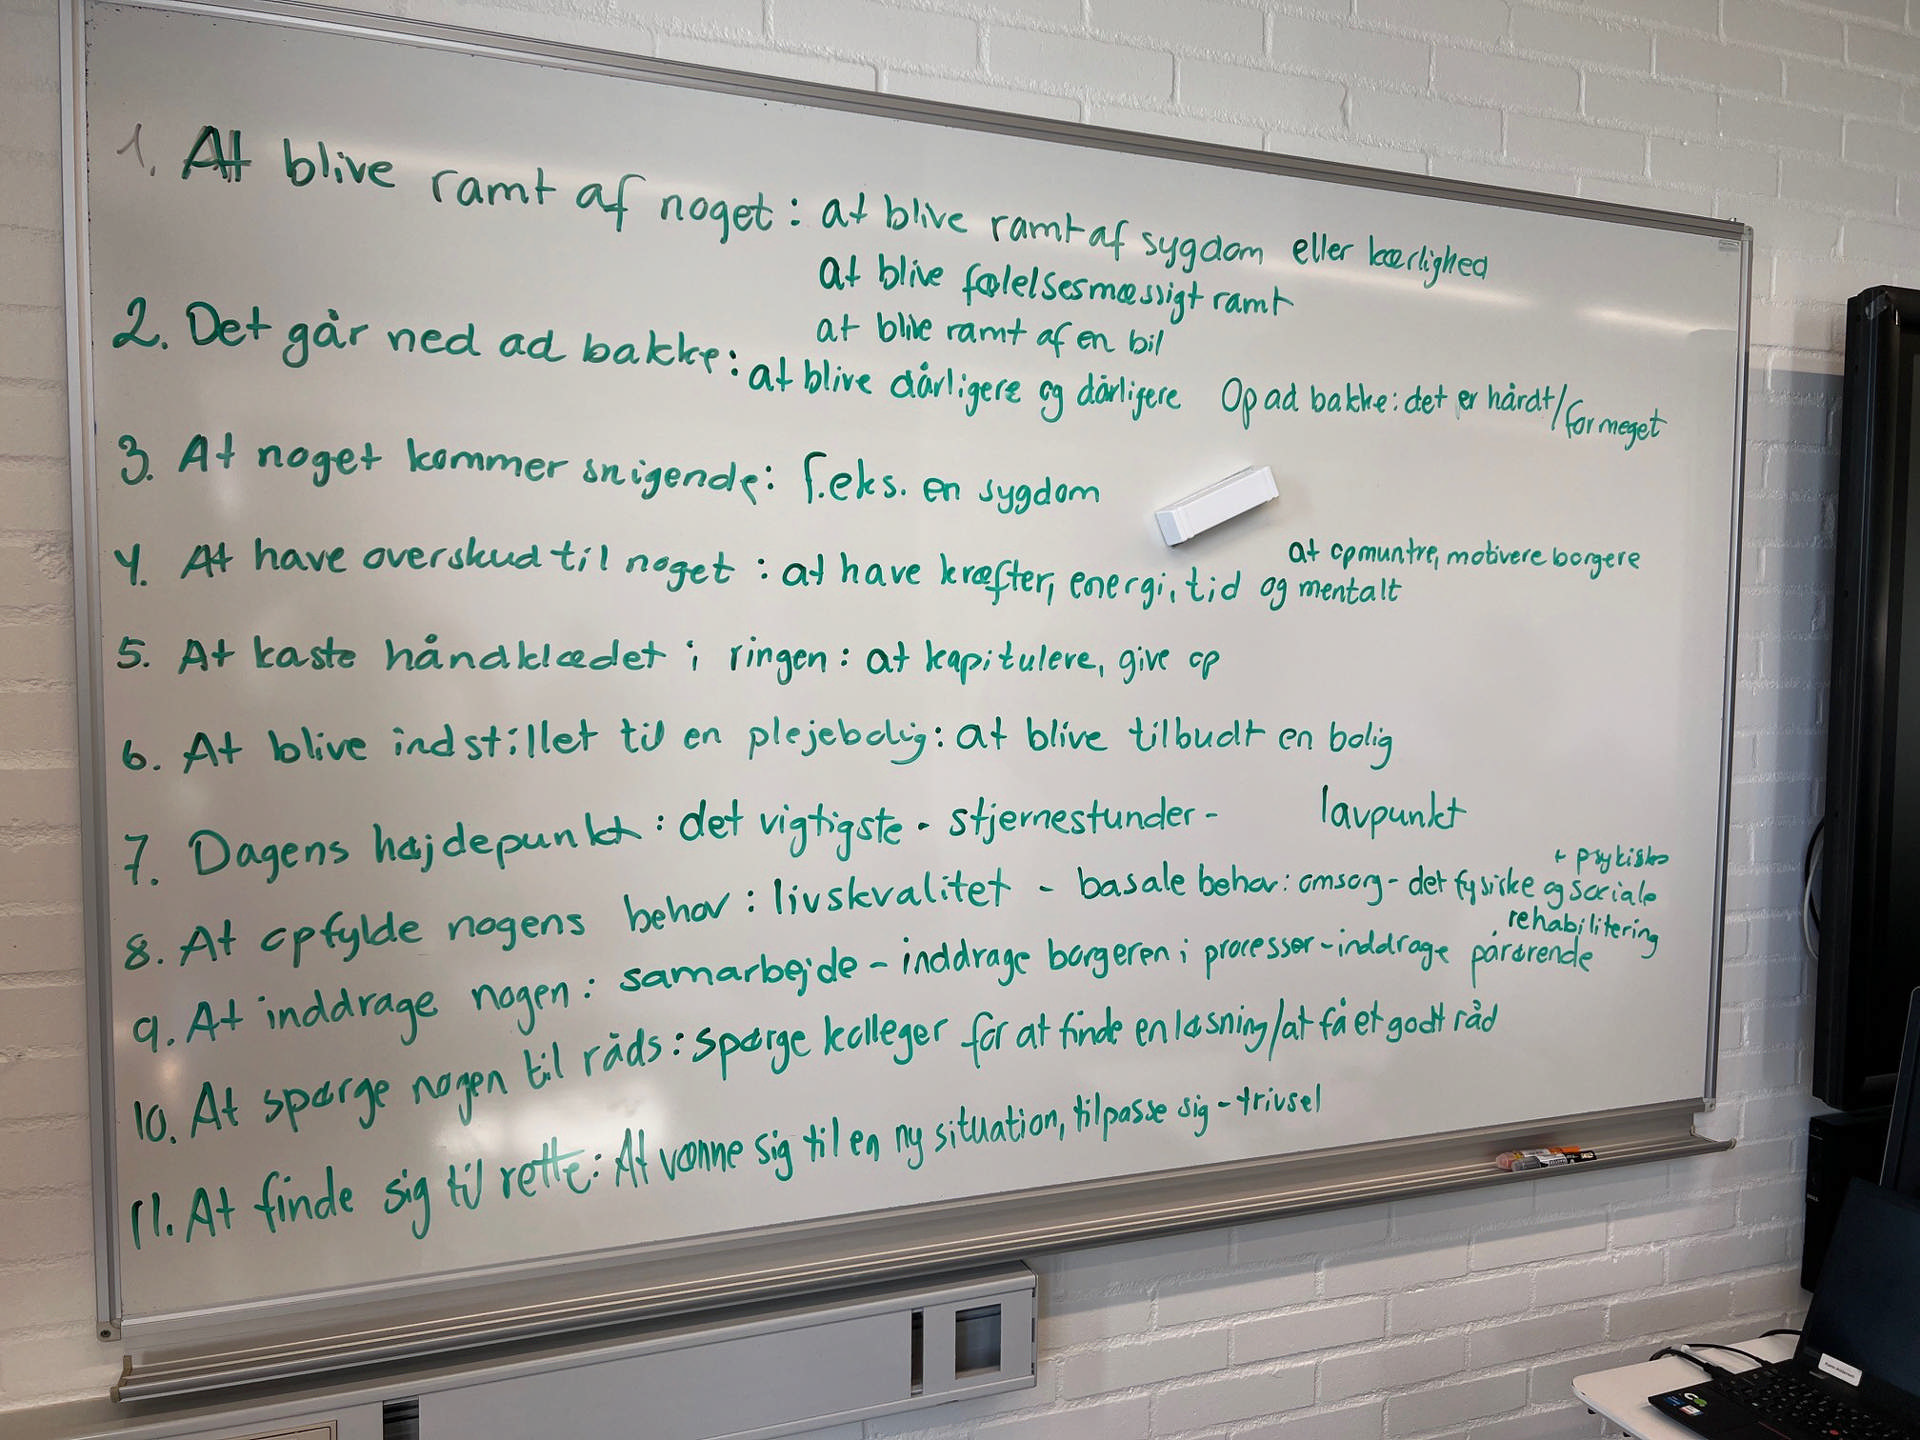 1. At blive ramt af noget: at blive ramt af sygdom eller kærlighed
at blive følelsesmæssigt ramt
at blive ramt af en bil
2. Det går ned ad bakke: at blive dårligere og dårligere Op ad bakke: det er hårdt/for meget
3. At noget kommer snigende: f.eks. en sygdom
at opmuntre, motivere borgere
4. At have overskud til noget: at have kræfter, energi, tid og mentalt
5. At kaste håndklædet i ringen: at kapitulere, give op
6. At blive indstillet til en plejebolig: at blive tilbudt en bolig
7. Dagens højdepunkt: det vigtigste - stjernestunder - lavpunkt
+ psykiske
8. At opfylde nogens behov: livskvalitet - basale behov: omsorg - det fysiske og sociale
rehabilitering
9. At inddrage nogen: samarbejde - inddrage borgeren i processer - inddrage pårørende
10. At spørge nogen til råds: spørge kolleger for at finde en løsning/at få et godt råd
11. At finde sig til rette: At vænne sig til en ny situation, tilpasse sig - trivsel
DELL